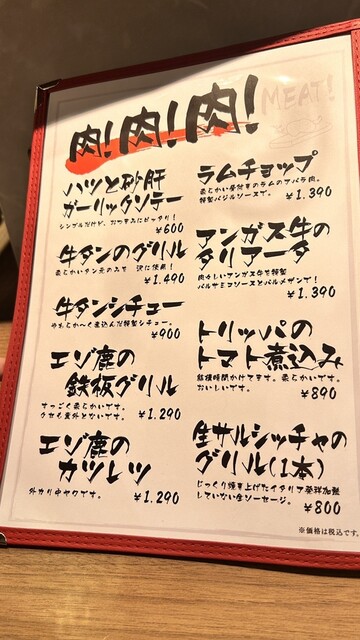 肉!肉!肉!
MEAT!
ハツと砂肝
ガーリックソテー
シンプルだけど、おつまみにピッタリ!
¥600
牛タンのグリル
柔らかいタン元のみを 贅沢に使用!
¥1.490
牛タンシチュー
やわらか〜く煮込んだ特製シチュー。
¥900
エゾ鹿の
鉄板グリル
すっごく柔らかいです。
クセも意外とないです。
¥1.290
エゾ鹿の
カツレツ
外カリ中ヤワです。
¥1.290
ラムチョップ
柔らかい骨付きのラムのアバラ肉。
特製バジルソースで。
¥1.390
アンガス牛の
タリアータ
肉々しいアンガス牛を特製
バルサミコソースとパルメザンで!
¥1.390
トリッパの
トマト煮込み
結構時間かけてます。柔らかいです。
おいしいです。
¥890
生サルシッチャの
グリル(1本)
じっくり焼き上げたイタリア発祥加熱
していない生ソーセージ。
¥800
※価格は税込です。